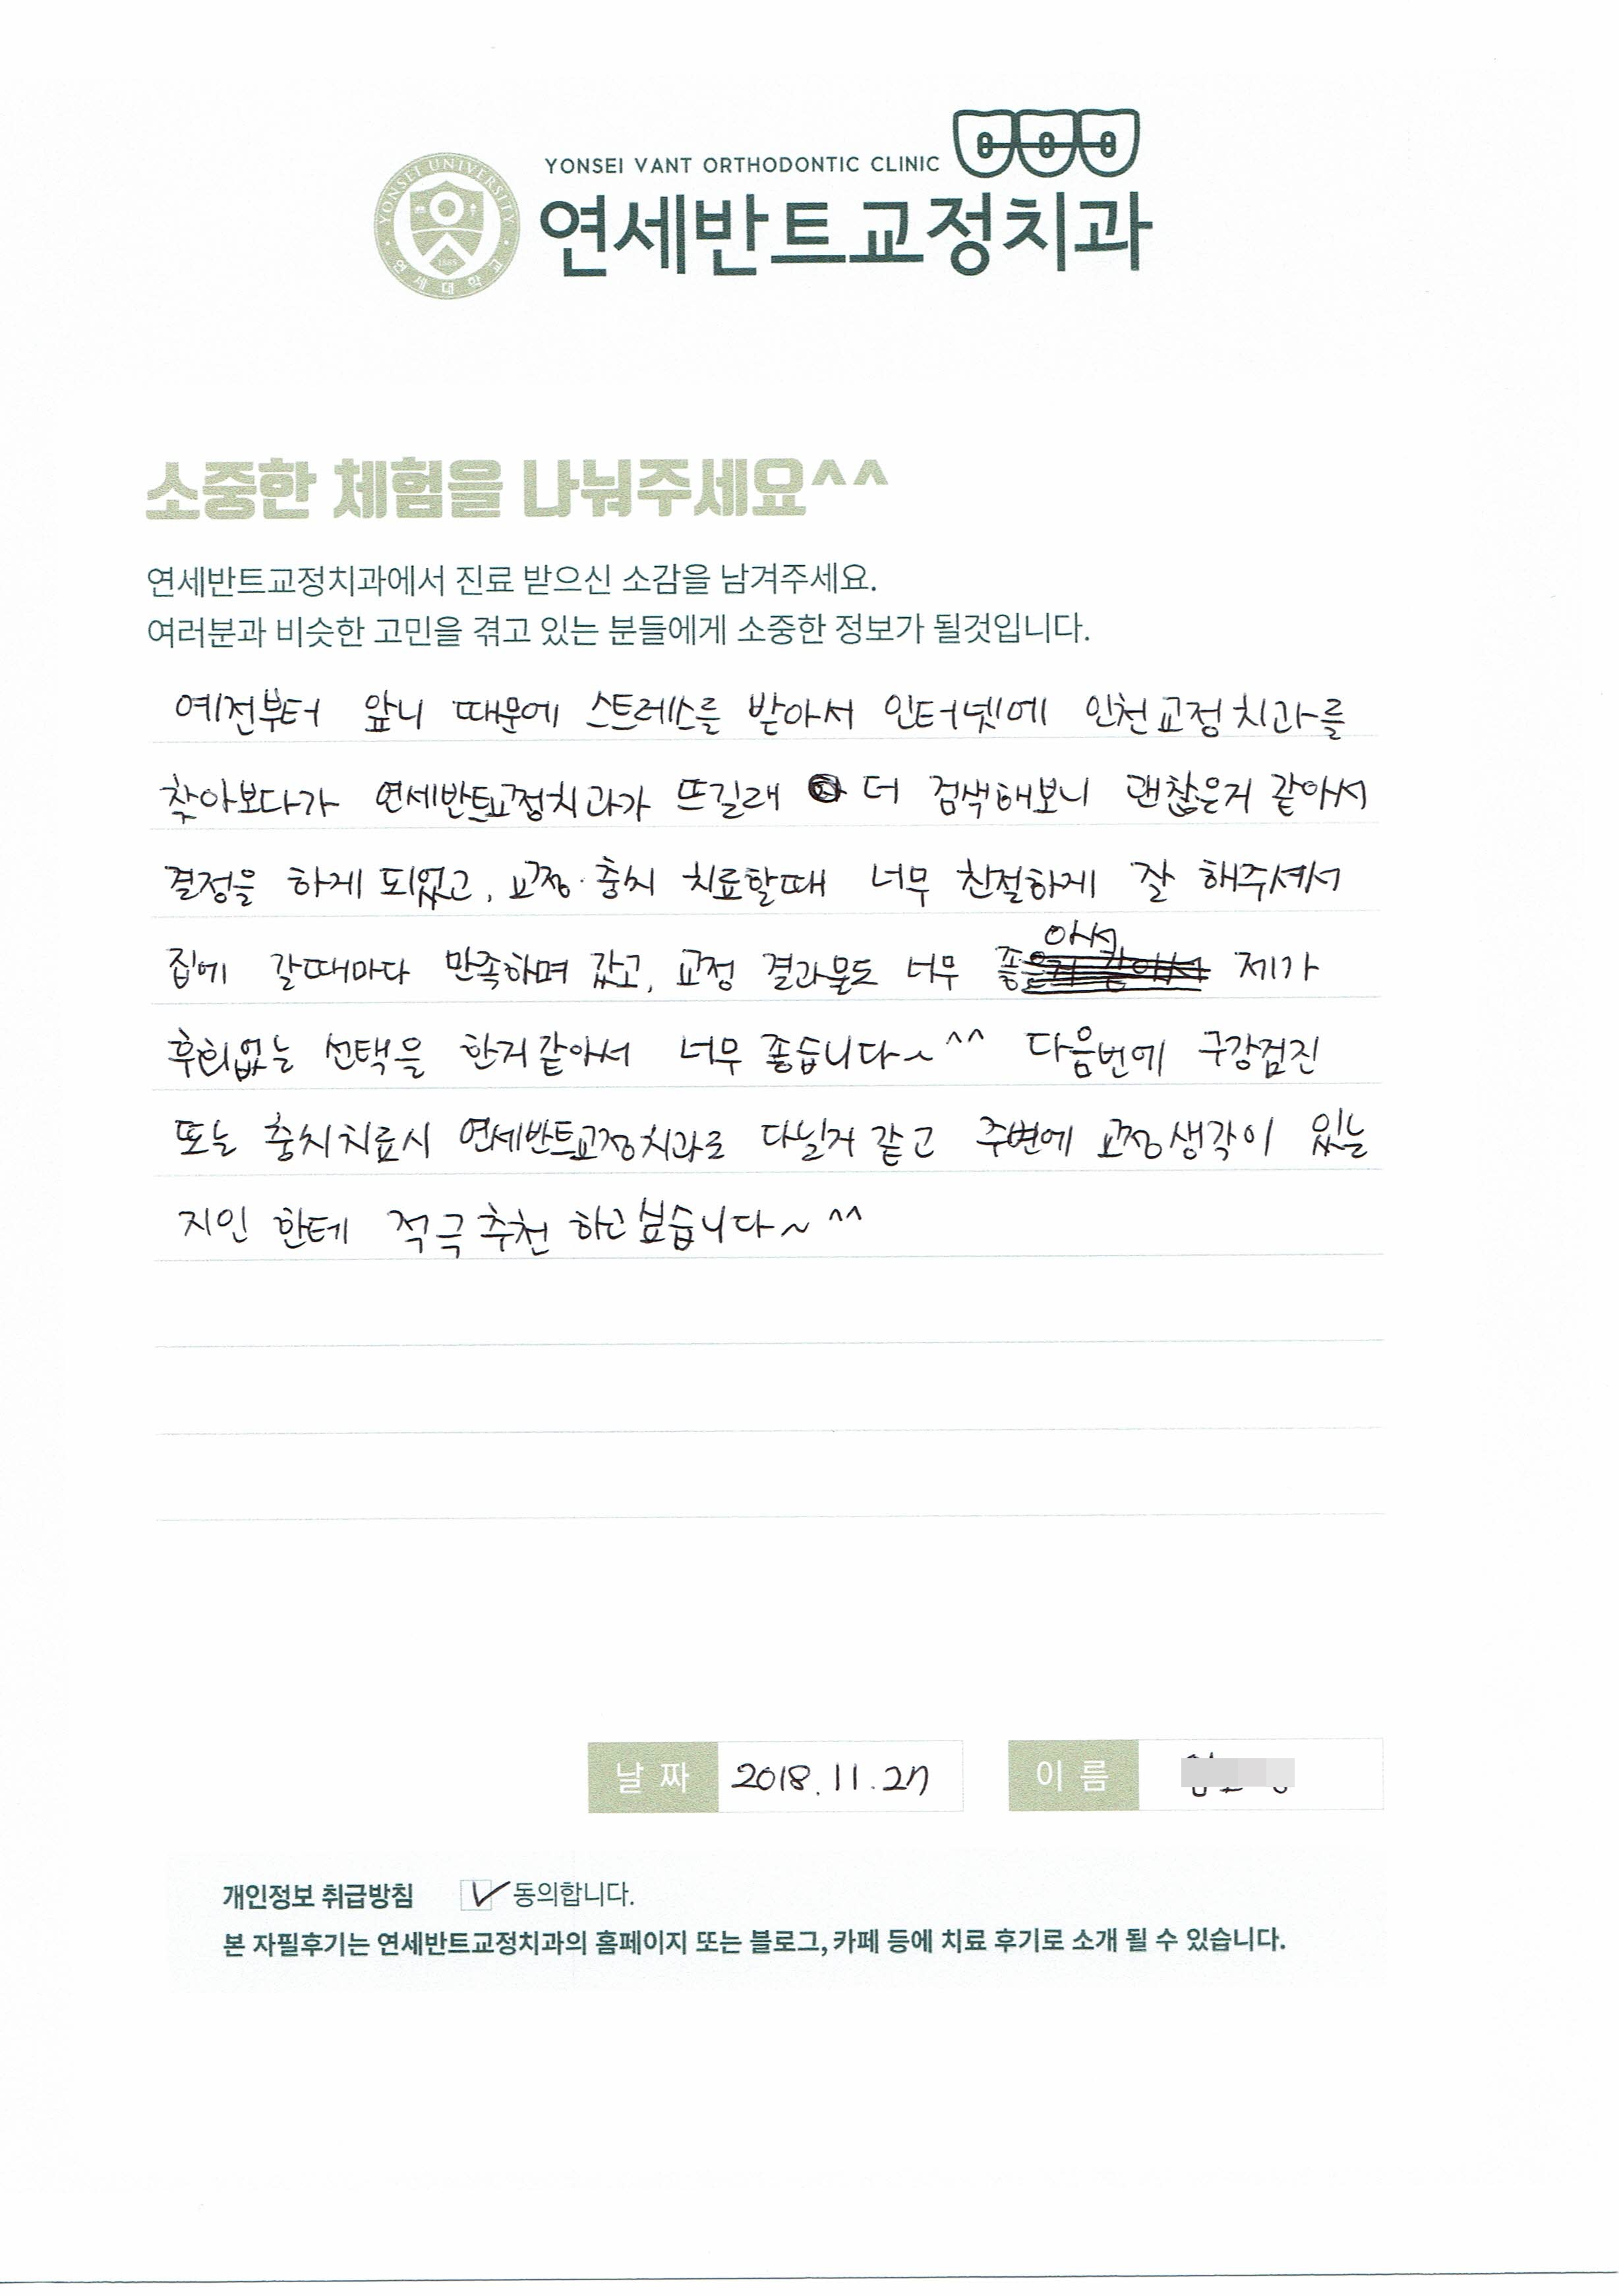 YONSEI VANT ORTHODONTIC CLINIC
YONSEI UNIVERSITY
연세대학교
연세반트교정치과
소중한 체험을 나눠주세요^^
연세반트교정치과에서 진료 받으신 소감을 남겨주세요.
여러분과 비슷한 고민을 겪고 있는 분들에게 소중한 정보가 될것입니다.
예전부터 앞니 때문에 스트레스를 받아서 인터넷에 인천교정치과를
찾아보다가 연세반트교정치과가 뜨길래 더 검색해보니 괜찮은거 같아서
결정을 하게 되었고, 교정·충치 치료할때 너무 친절하게 잘 해주셔서
집에 갈때마다 만족하며 갔고, 교정 결과물도 너무 좋아서 제가
후회없는 선택을 한거같아서 너무 좋습니다~^^ 다음번에 구강검진
또는 충치치료시 연세반트교정치과로 다닐거 같고 주변에 교정생각이 있는
지인 한테 적극추천 하고싶습니다~^^
날짜 2018.11.27 이름
개인정보 취급방침 동의합니다.
본 자필후기는 연세반트교정치과의 홈페이지 또는 블로그, 카페 등에 치료 후기로 소개 될 수 있습니다.